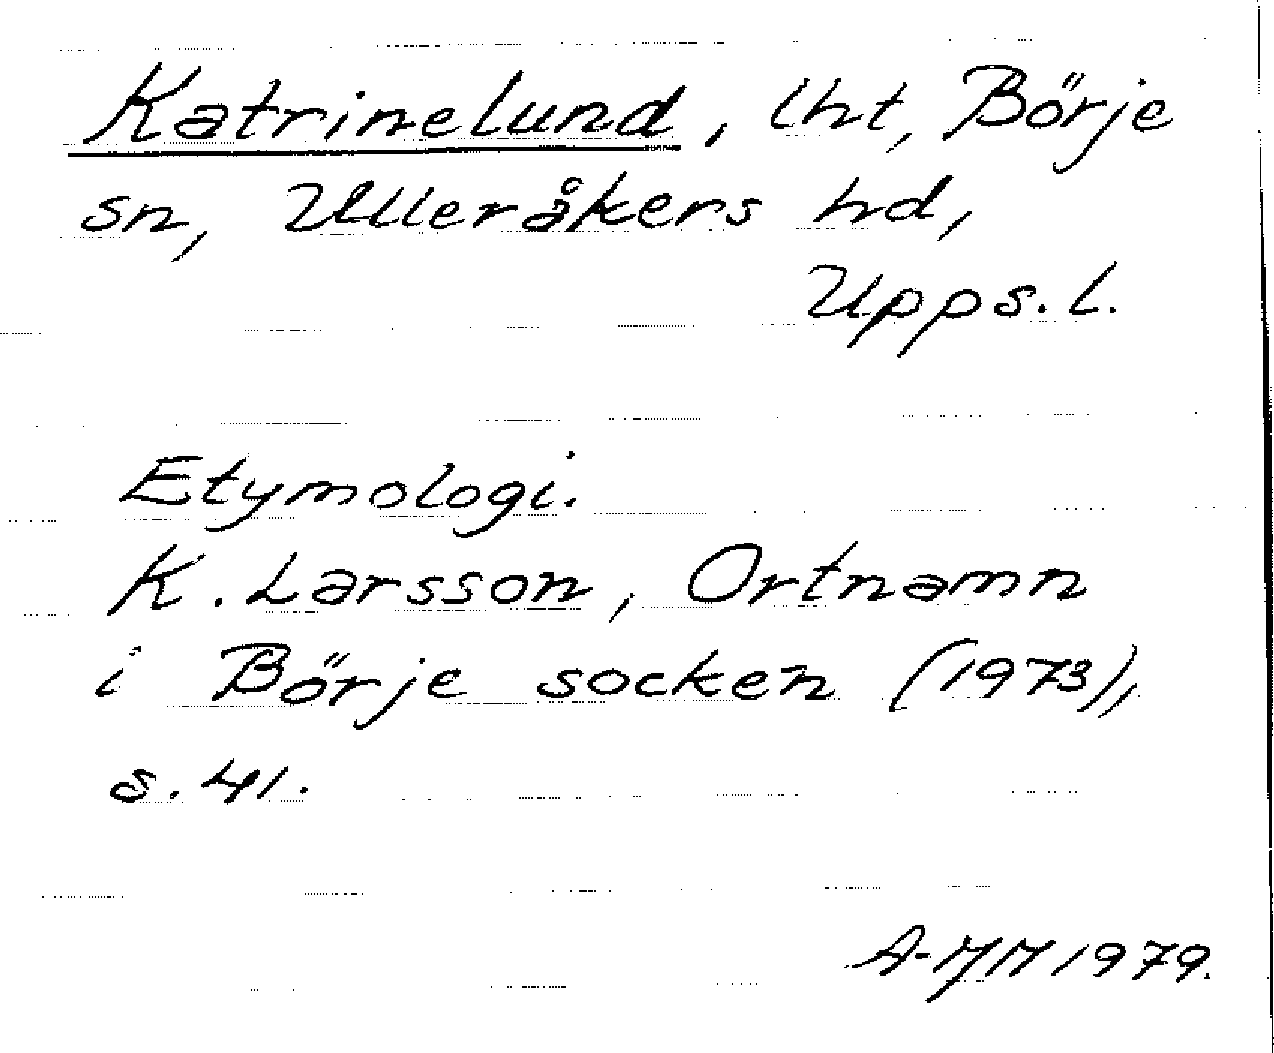 Katrinelund, lht, Börje
sn, Ulleråkers hd,
Upps. l.
Etymologi.
K. Larsson, Ortnamn
i Börje socken (1973),
s. 41.
1979.